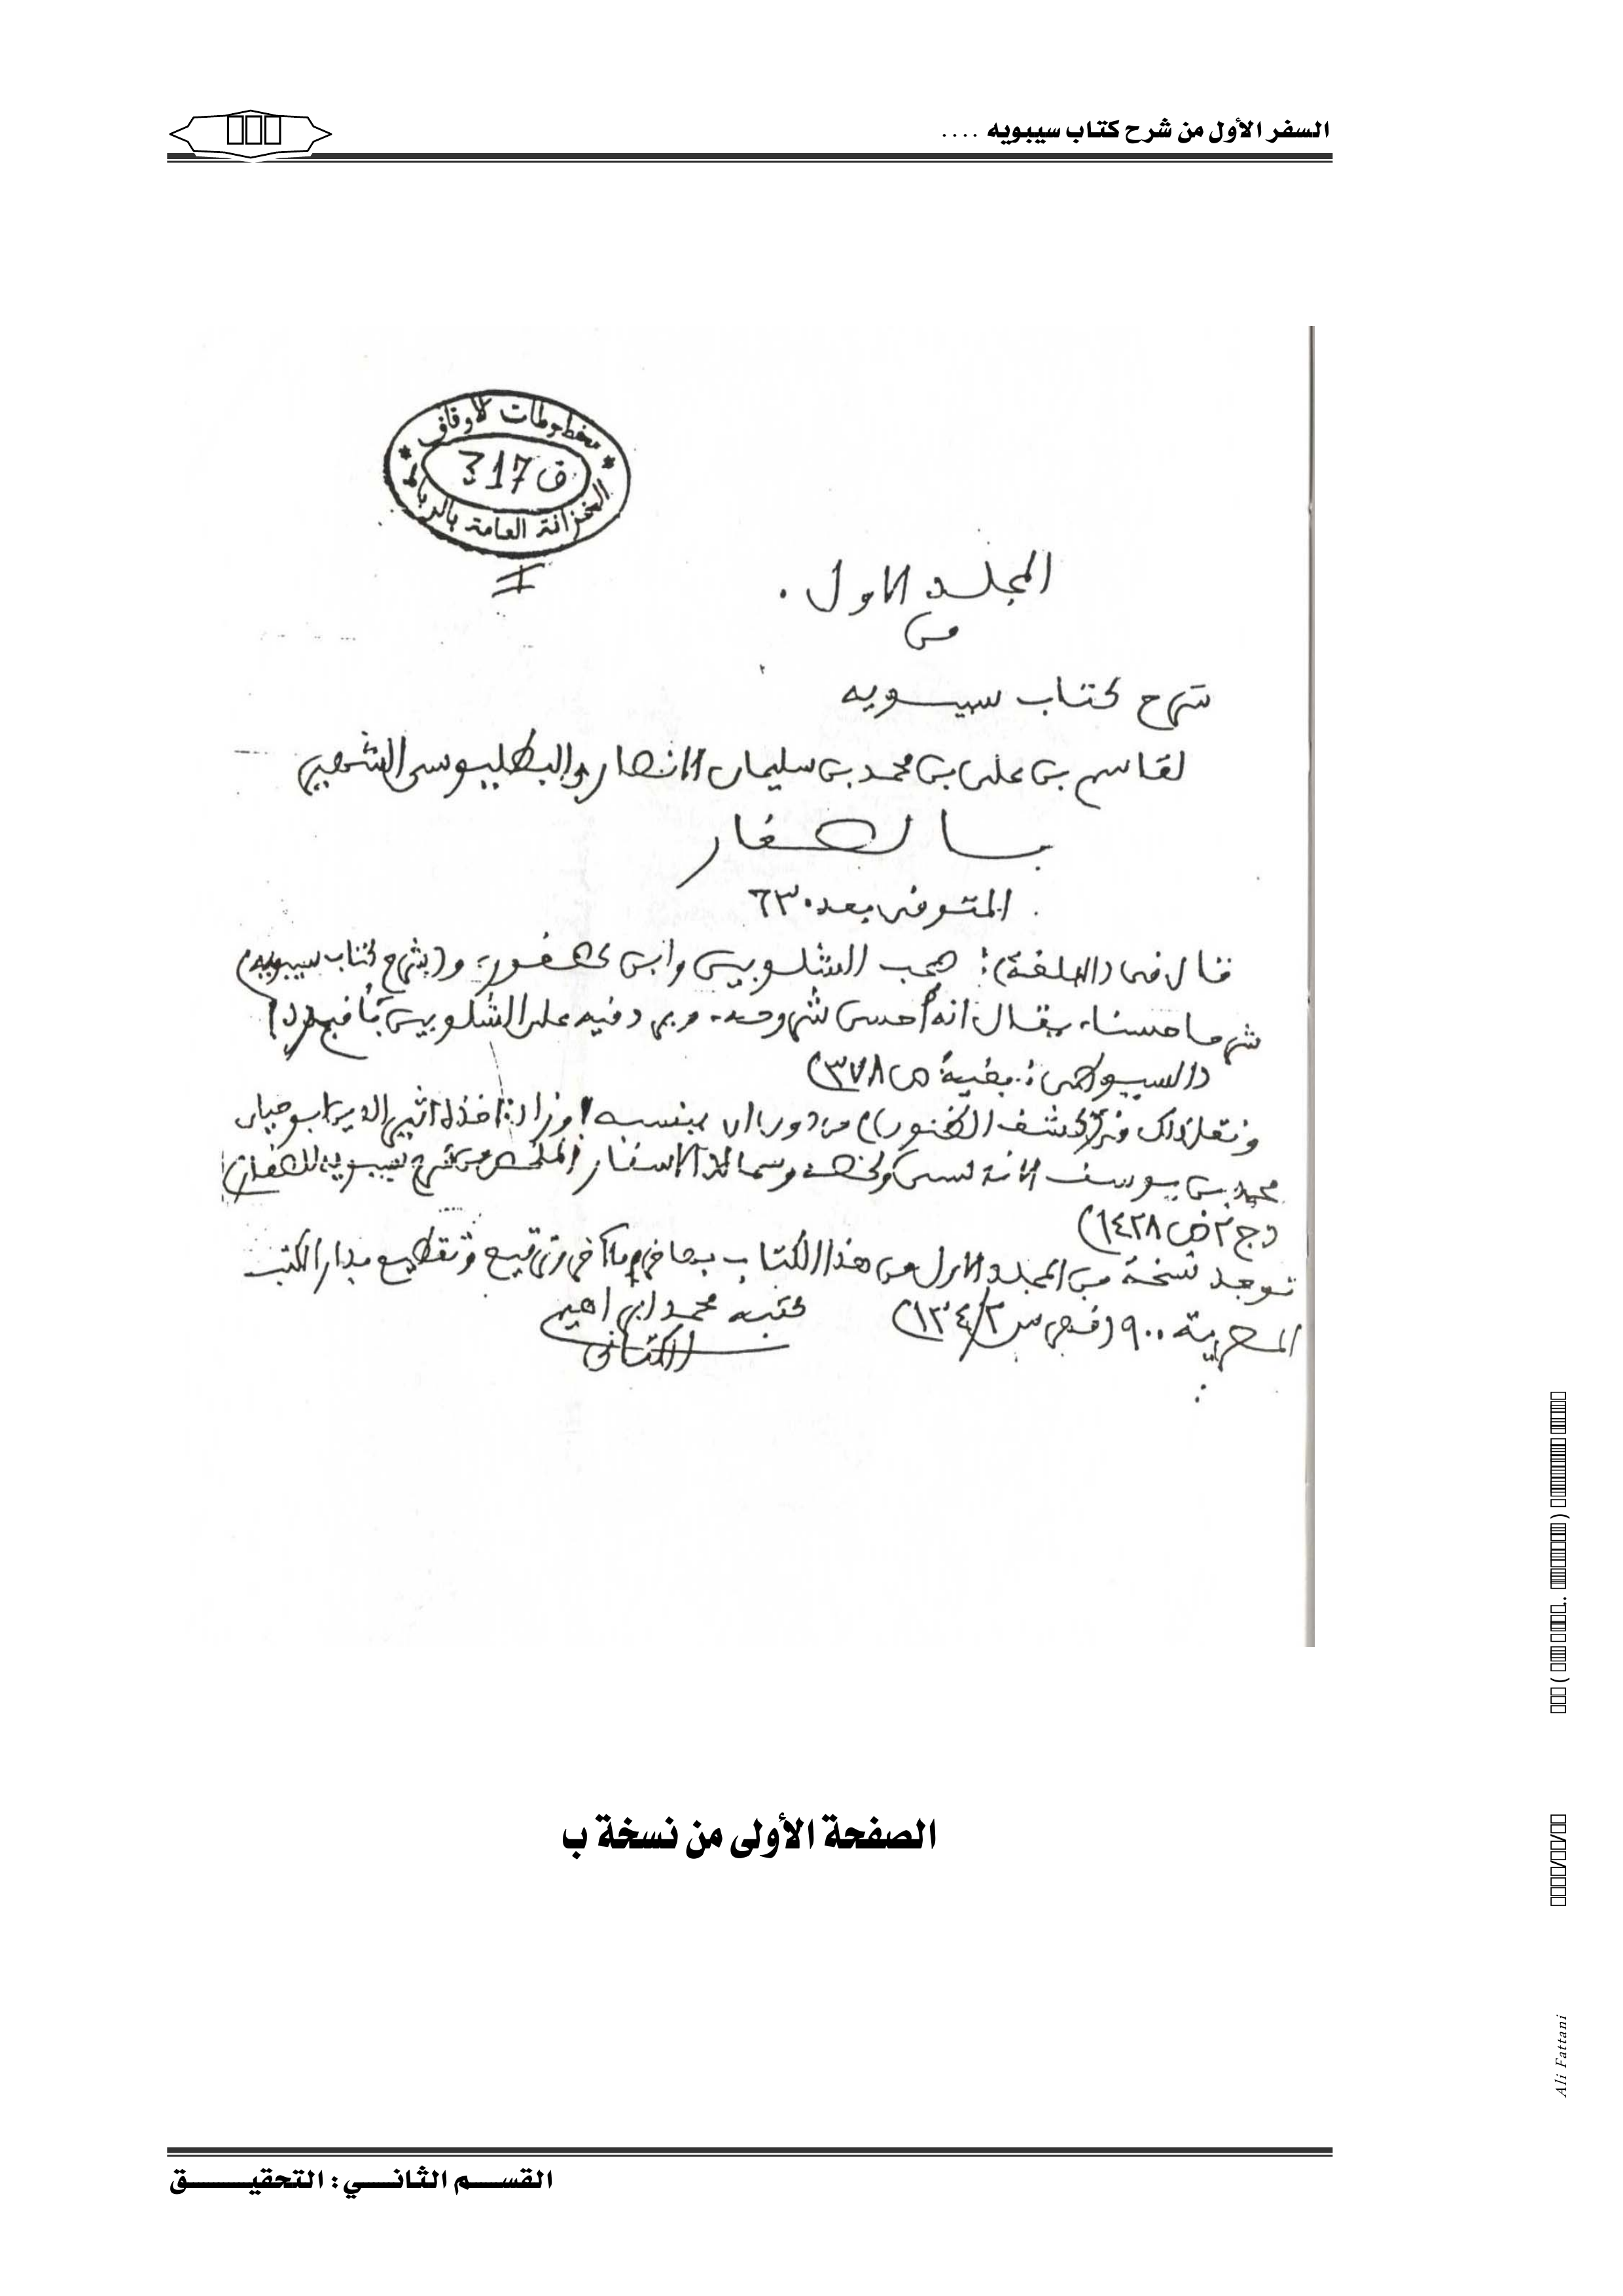 السفر الأول من شرح كتاب سيبويه ....
مخطوطات الاوقاف
ف 317
الخزانة العامة بالرباط
I
المجلد الاول .
من
شرح كتاب سيبويه
لقاسم بن على بن محمد بن سليمان الانصارى البطليوسى الشهير
بالصفار
المتوفى بعد ٦٣٠
قال فى (البلغة): صحب الشلوبين وابن عصفور، و(شرح كتاب سيبويه)
شرحا حسنا، يقال انه أحسن شروحه، ويرد فيه على الشلوبين بأقبح رد)
(السيوطى: بغية: ص ٣٧٨)
ونقل ذلك فى (كشف الظنون) من دون ان ينسبه، وزاد: اخذه اثير الدين ابو حيان
محمد بن يوسف الاندلسى ولخصه وسماه الاسفار الملخص من شرح سيبويه للصفار)
(ج ٢ ص ١٤٢٨)
توجد نسخة من المجلد الاول من هذا الكتاب بها خروم وآخرى ترقيع وتقطيع بدار الكتب
المصرية ٩٠٠ (فهرس ٢/١٣٤)
كتبه محمد ابراهيم
الكتانى
الصفحة الأولى من نسخة ب
القسم الثاني : التحقيق
Ali Fattani